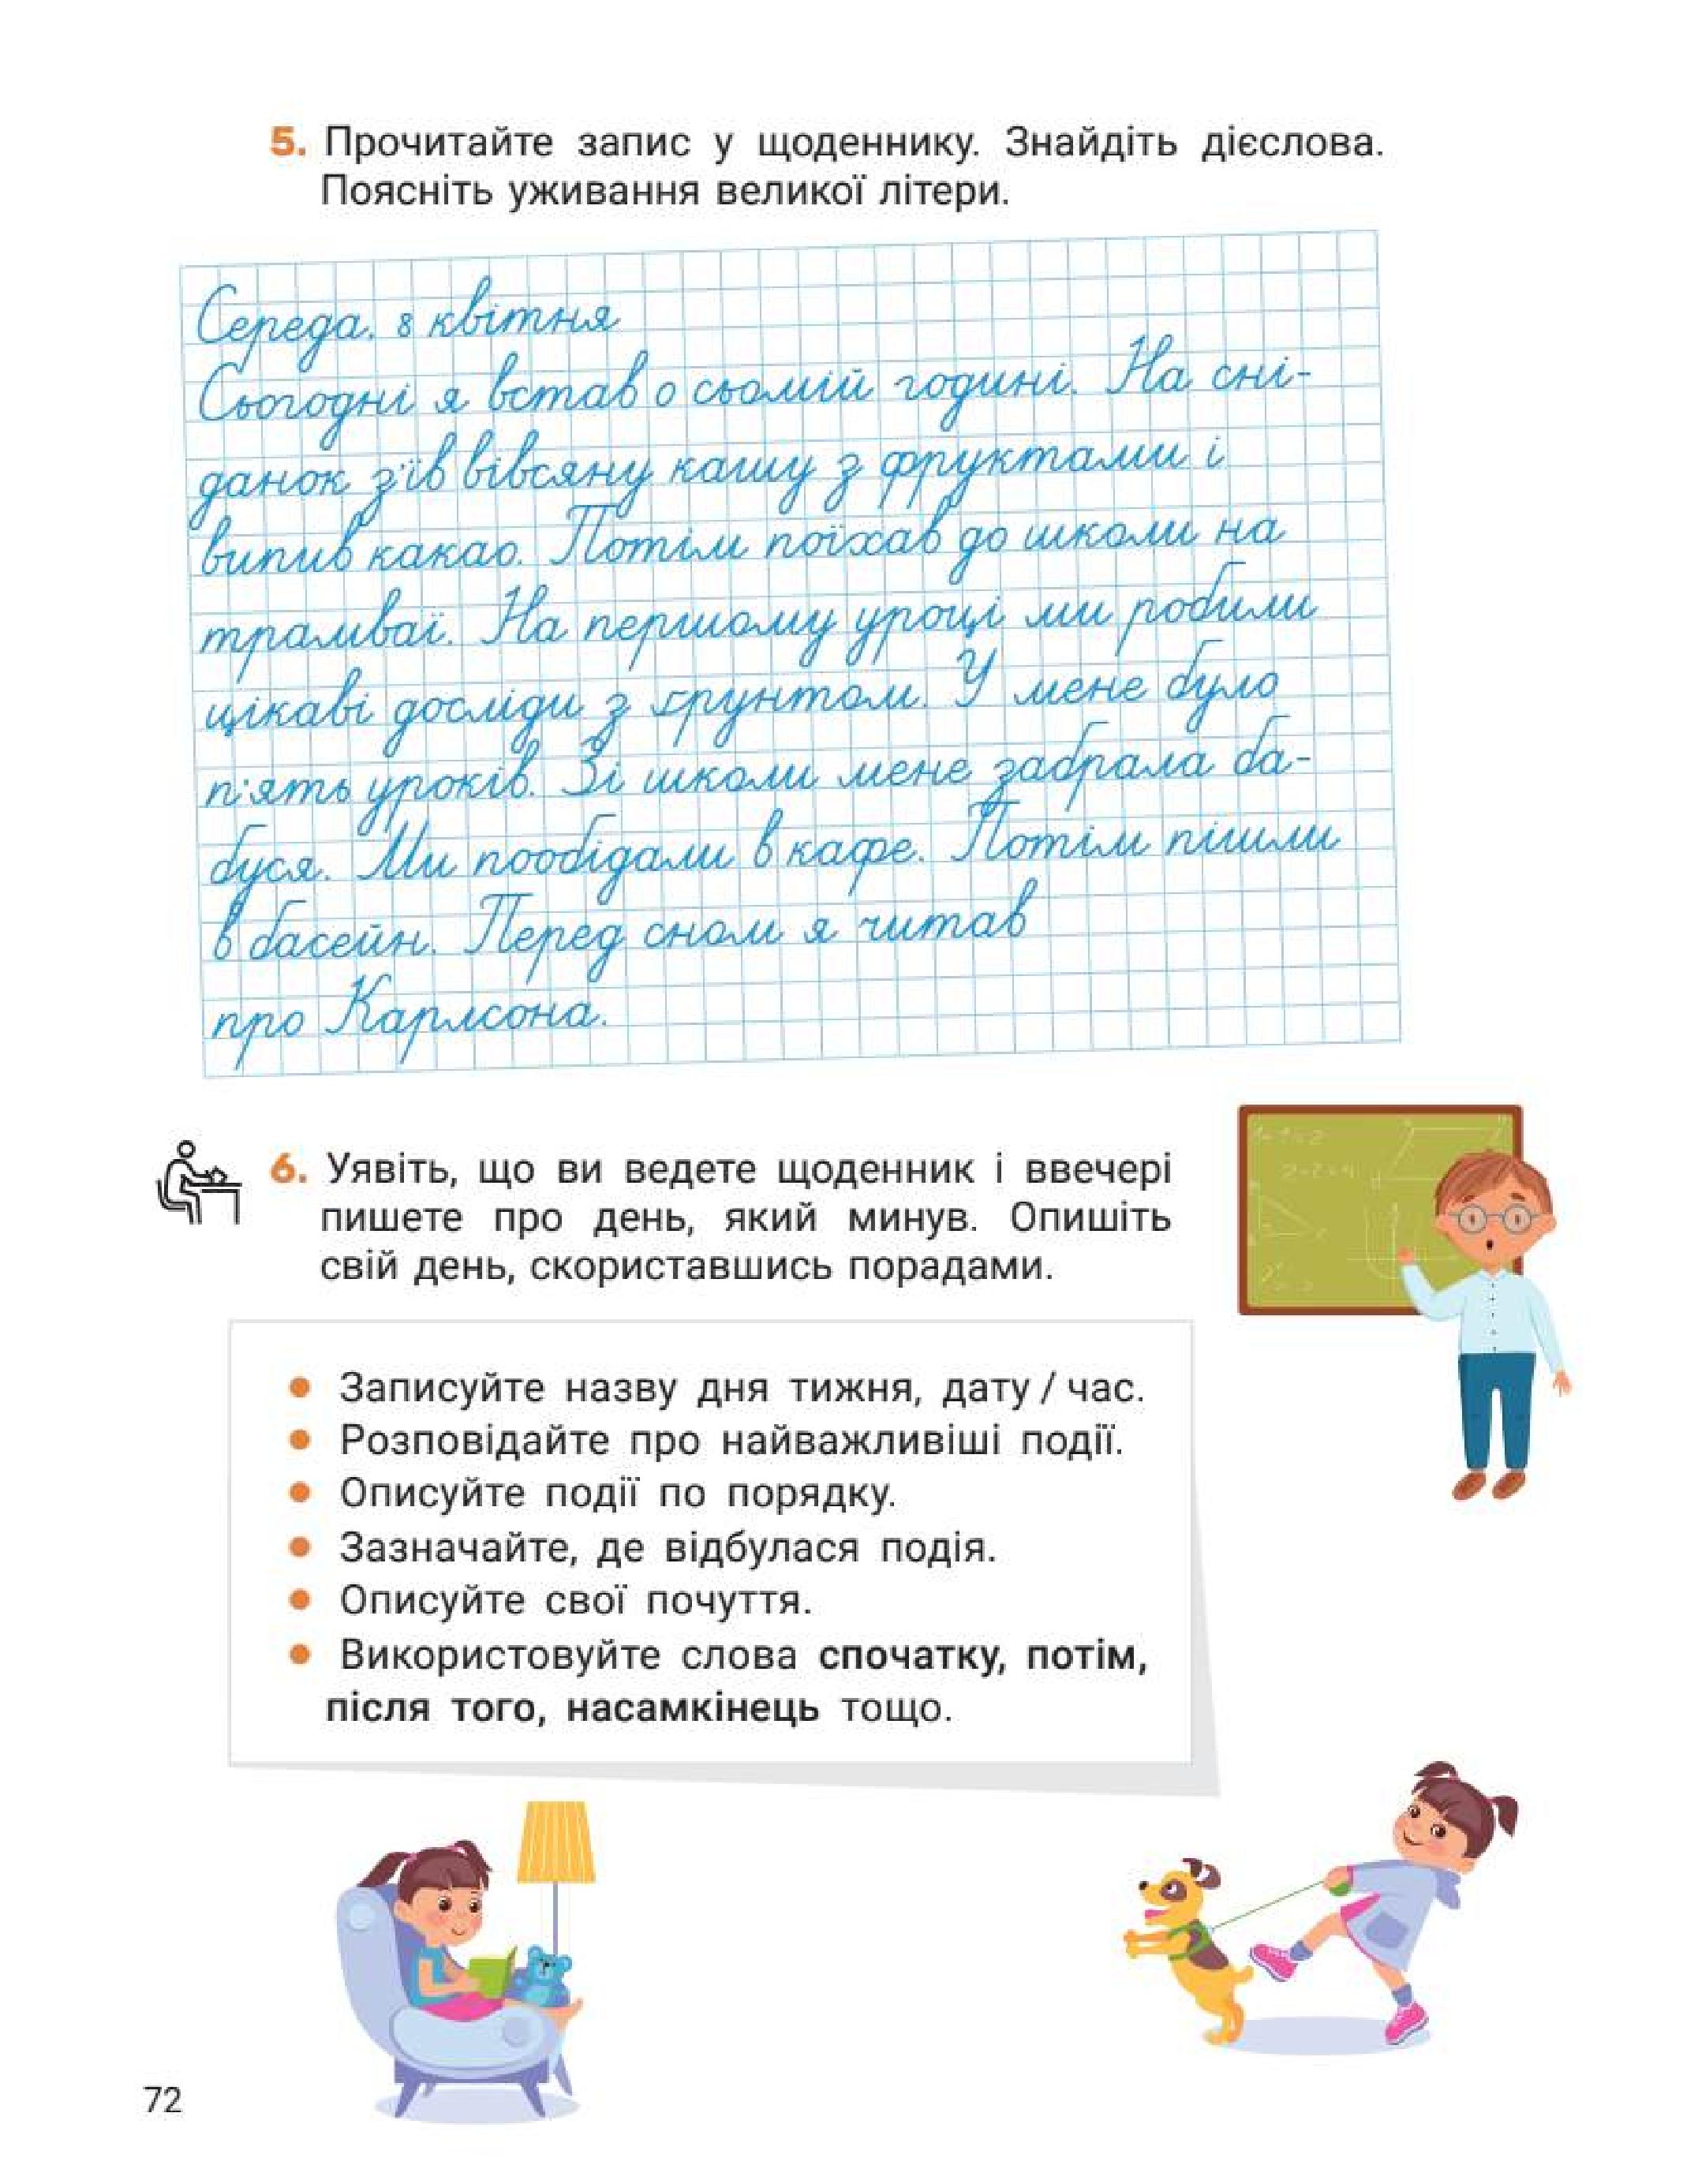 5. Прочитайте запис у щоденнику. Знайдіть дієслова.
Поясніть уживання великої літери.
Середа. 8 квітня
Сьогодні я встав о сьомій годині. На сні-
данок з'їв вівсяну кашу з фруктами і
випив какао. Потім поїхав до школи на
трамваї. На першому уроці ми робили
цікаві досліди з ґрунтом. У мене було
п'ять уроків. Зі школи мене забрала ба-
буся. Ми пообідали в кафе. Потім пішли
в басейн. Перед сном я читав
про Карлсона.
6. Уявіть, що ви ведете щоденник і ввечері
пишете про день, який минув. Опишіть
свій день, скориставшись порадами.
• Записуйте назву дня тижня, дату / час.
• Розповідайте про найважливіші події.
• Описуйте події по порядку.
• Зазначайте, де відбулася подія.
• Описуйте свої почуття.
• Використовуйте слова спочатку, потім,
після того, насамкінець тощо.
72